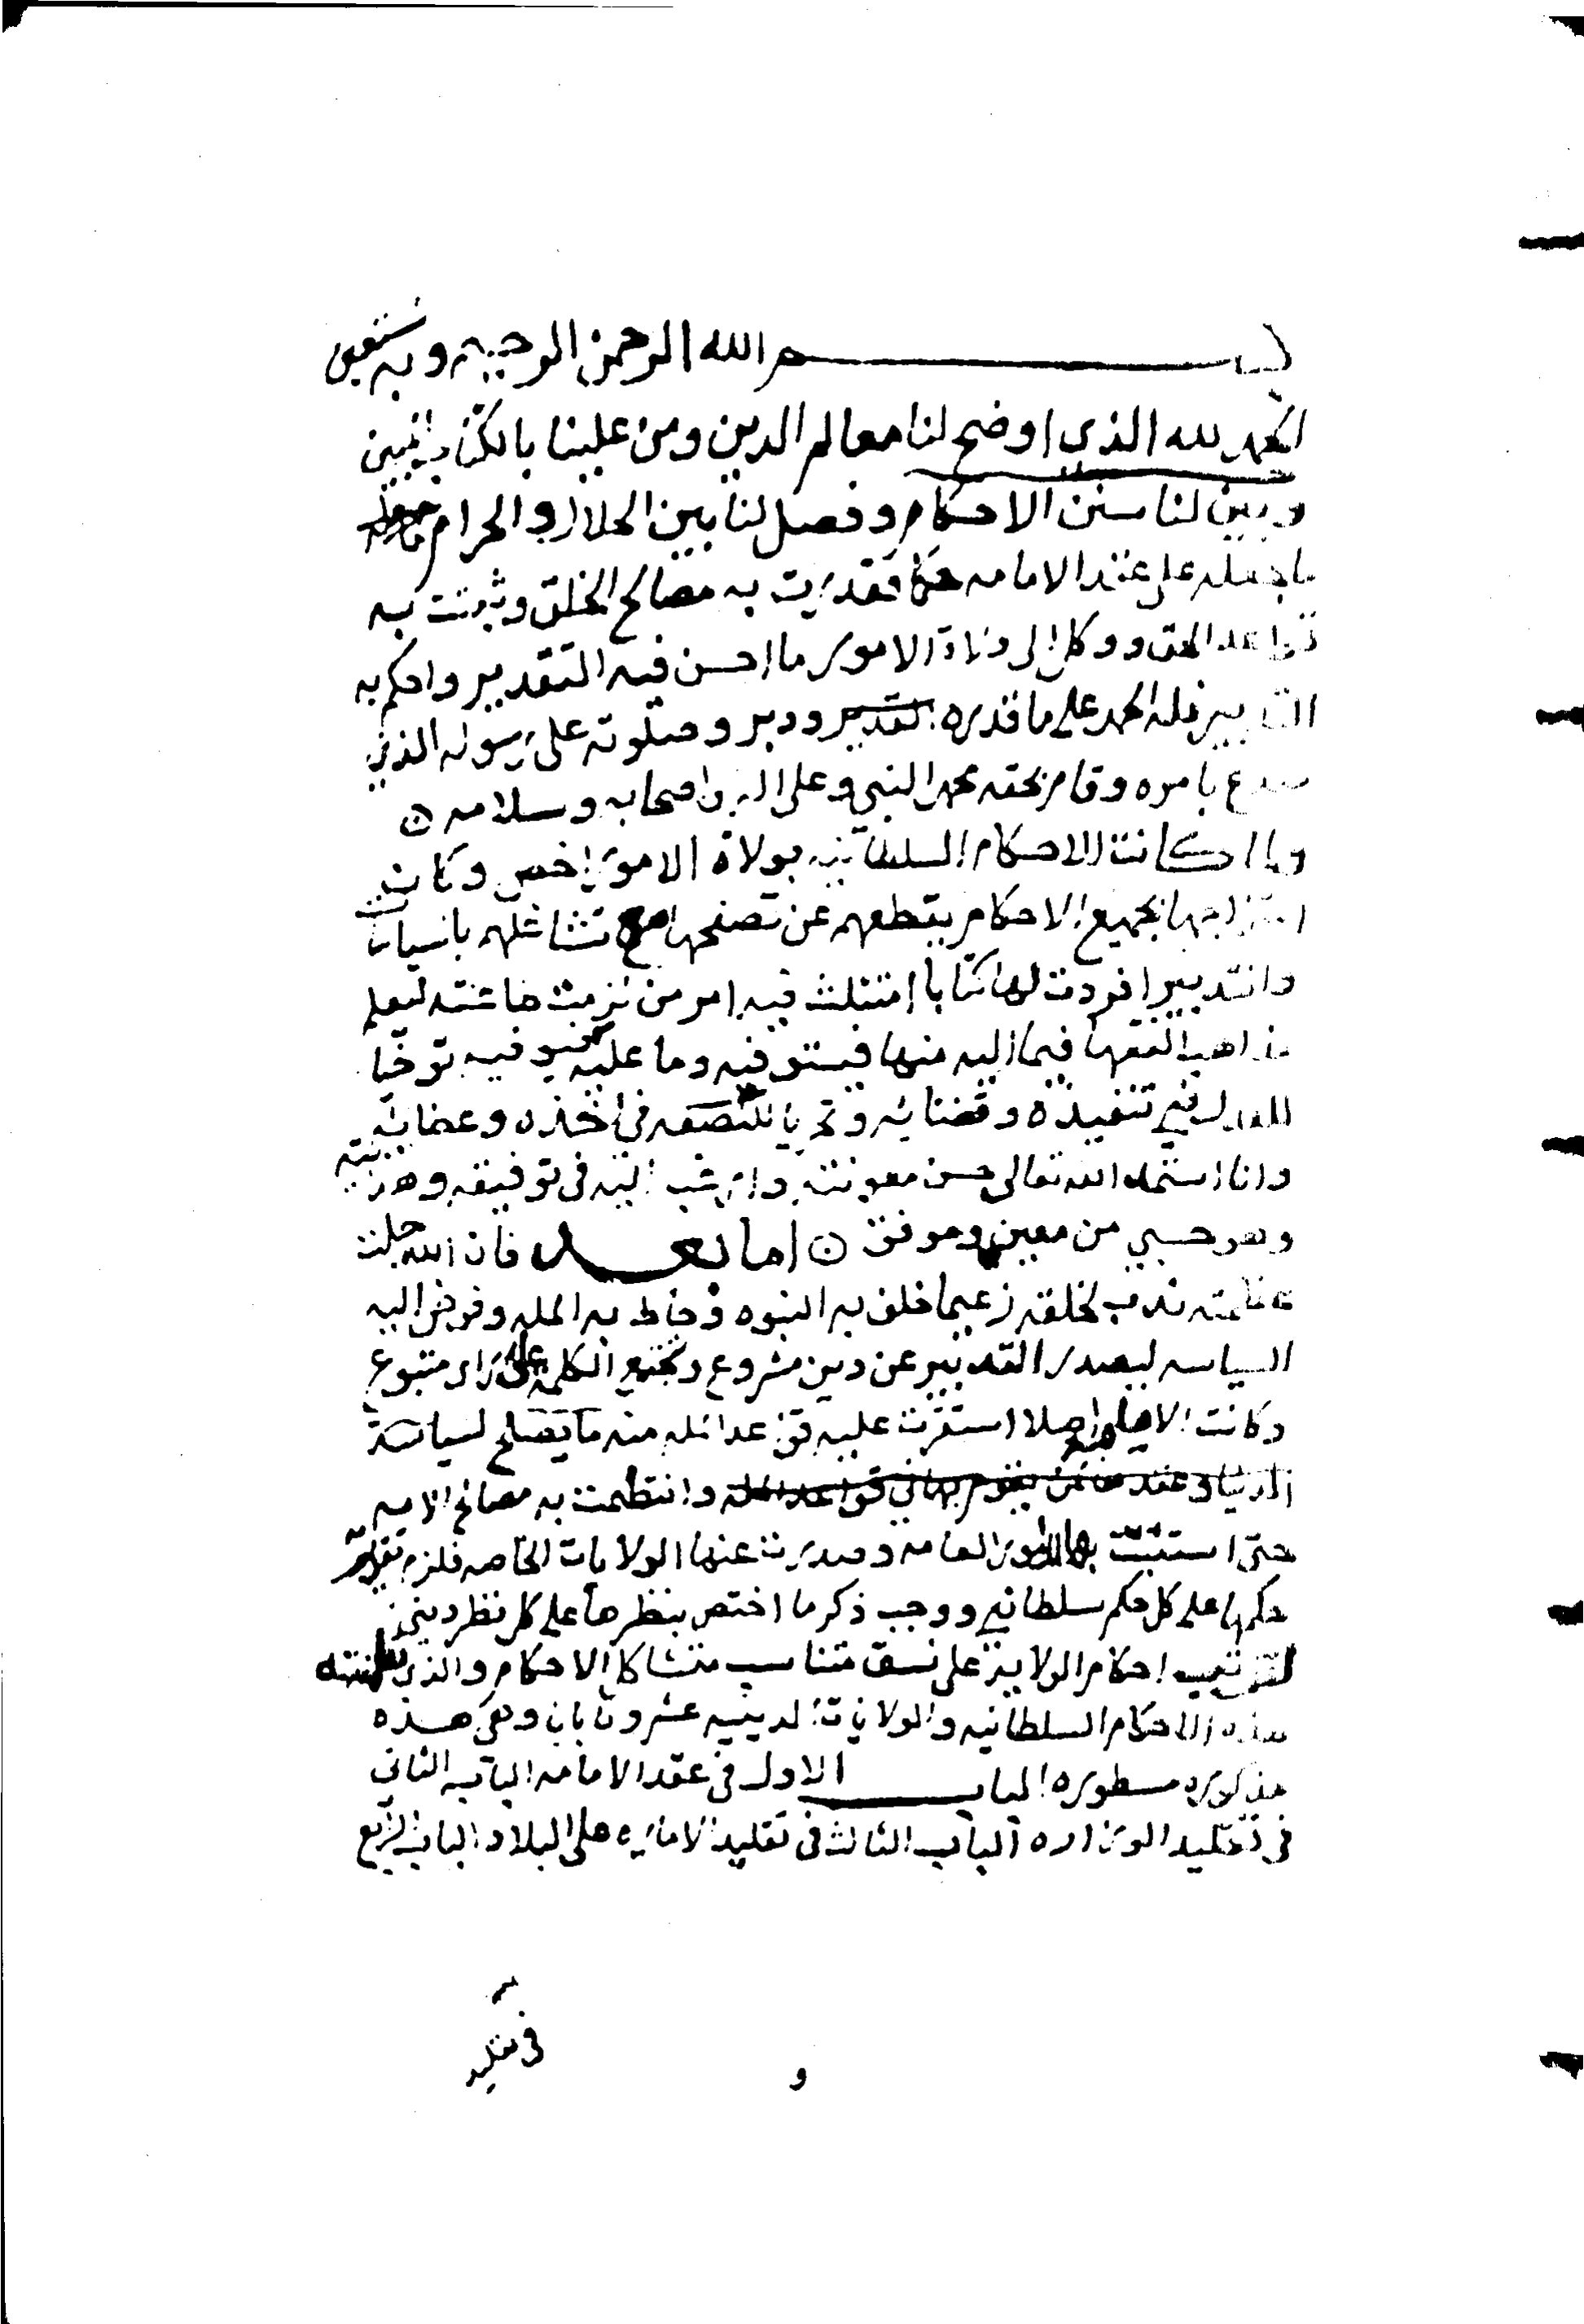 بسم الله الرحمن الرحيم وبه نستعين
الحمد لله الذي اوضح لنا معالم الدين ومن علينا بالكتاب المبين
وبين لنا سنن الاحكام وفصل لنا بين الحلال والحرام
ما جعله على الامامه حكما فقدرت به مصالح الخلق وثبتت به
قواعد الحق ووكل الى ولاة الامور ما احسن فيه التقدير واحكم به
التدبير فله الحمد على ما قدره ودبر وصلوته على رسوله الذي
صدع بامره وقام بحقه محمد النبي وعلى اله واصحابه وسلامه
ولما كانت الاحكام السلطانيه بولاة الامور اخص وكان
امتزاجها بجميع الاحكام يقطعهم عن تصفحها مع تشاغلهم بالسياسة
والتدبير افردت لها كتابا امتثلت فيه امر من لزمت طاعته ليعلم
مذاهب الفقها فيما اليه منها فيستوفيه وما عليه فيوفيه توخيا
للعدل في تنفيذه وقضائه وتحريا للنصفه في اخذه وعطائه
وانا استمد الله تعالى حسن معونته وارغب اليه في توفيقه وهدايته
وهو حسبي من معين وموفق اما بعد فان الله جلت
عظمته ندب لخلقه زعيما خلف به النبوه وحاط به المله وفوض اليه
السياسه ليصدر التدبير عن دين مشروع وتجتمع الكلمه على راى متبوع
وكانت اصلا استقرت عليه قواعد المله منه ما يصلح لسياسة
الدنيا وانتظمت به مصالح الامه
حتى استتبت بها الامور العامه وصدرت عنها الولايات الخاصه فلزم تقديم
حكمها على كل حكم سلطاني ووجب ذكر ما اختص بنظرها على كل نظر ديني
لترتيب احكام الولايه على نسق متناسب متشاكل الاحكام والذي تضمنته
هذه الاحكام السلطانيه والولايات الدينيه عشرون بابا وهي هذه
مذكوره مسطوره الباب الاول في عقد الامامه الباب الثاني
في تقليد الوزاره الباب الثالث في تقليد الاماره على البلاد الباب الرابع
في تقليد
و